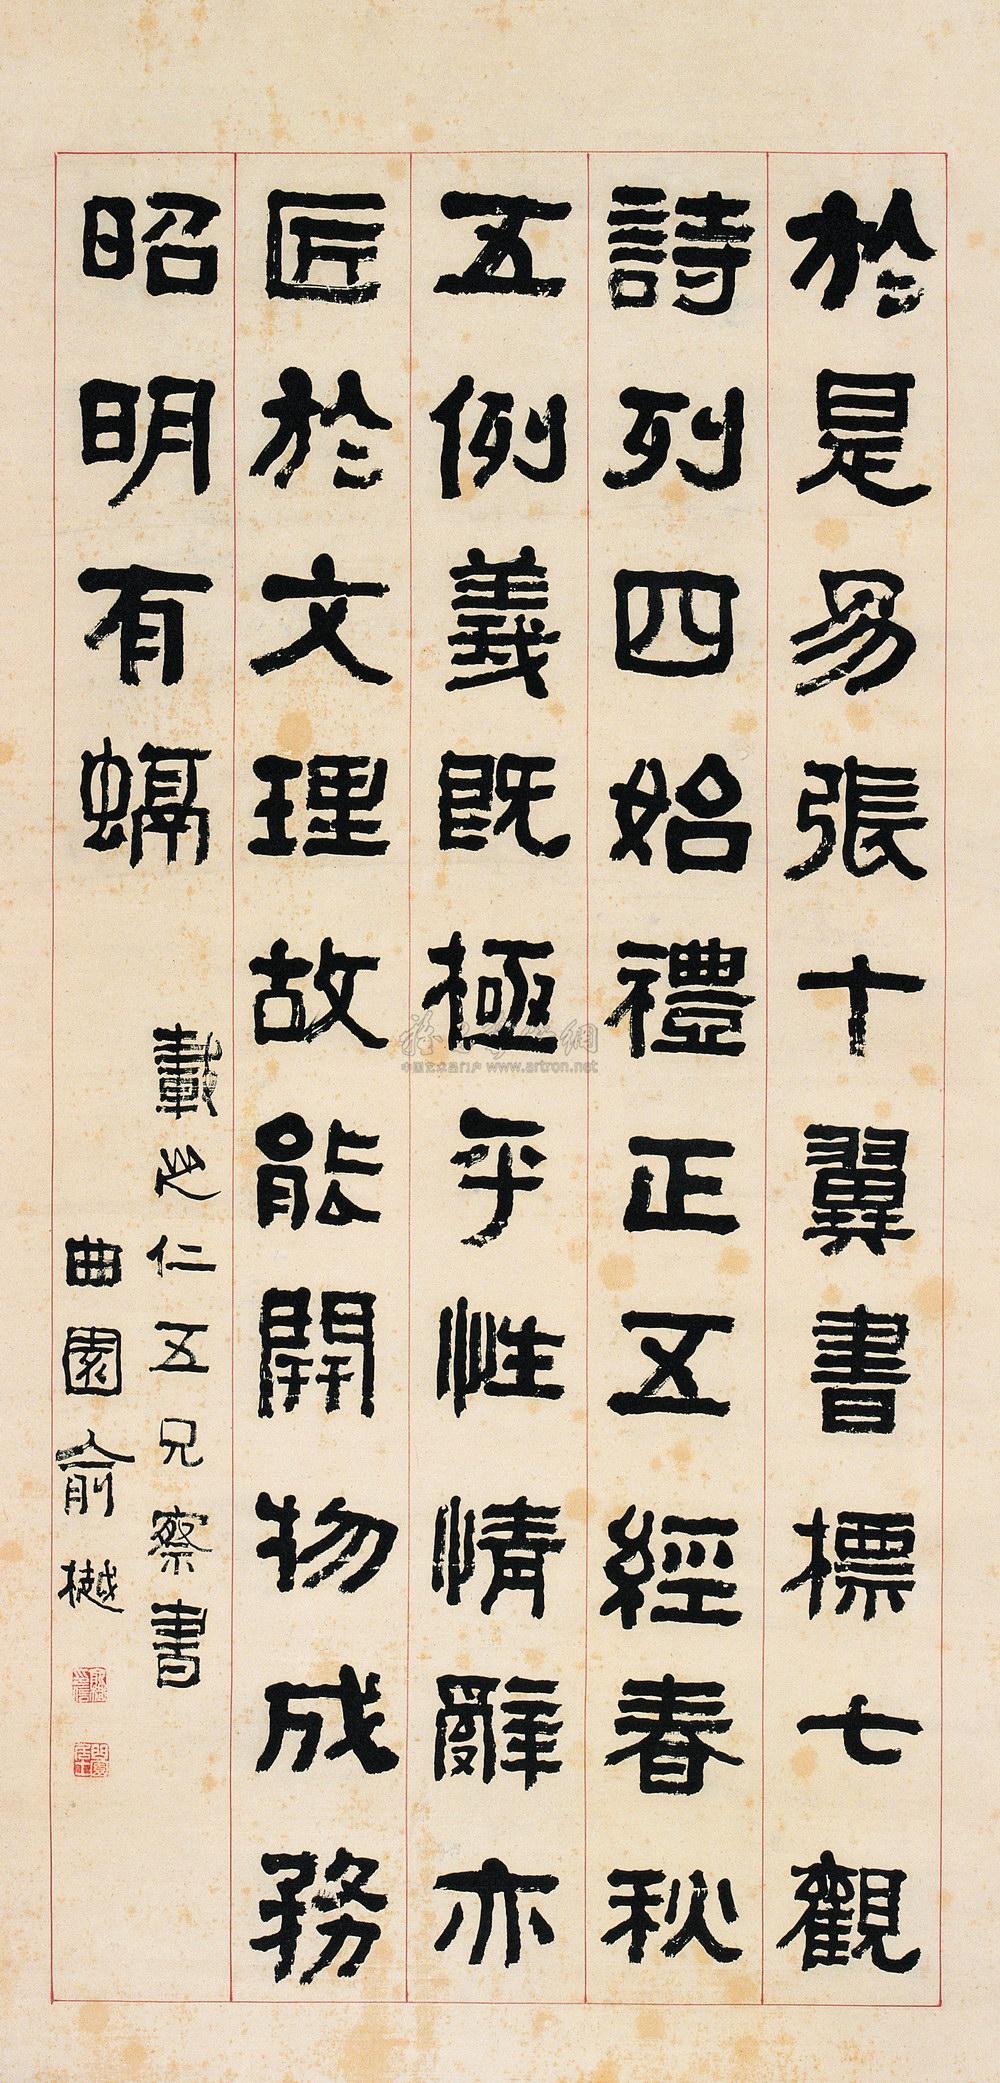 於是易張十翼書標七觀
詩列四始禮正五經春秋
五例義既極乎性情辭亦
匠於文理故能開物成務
昭明有螎
載之仁五兄察書
曲園俞樾
www.artron.net